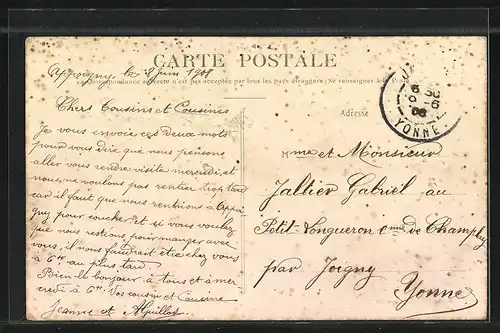 CARTE POSTALE
Appoigny, le 8 Juin 1908
La Correspondance au recto n'est pas acceptée par tous les pays étrangers (Se renseignez à la Poste)
Chers Cousins et Cousines
Je vous envoie ces deux mots
pour vous dire que nous pensons
aller vous rendre visite mercredi, et
nous ne voulons pas rentrer trop tard
car il faut que nous rentrions à Appoi
gny pour coucher, et si vous voulez
que nous restions pour manger avec
vous, il nous faudrait être chez vous
à 6h au plus tard.
Bien le bonjour à tous et à mer
credi à 6h. Vos cousin et Cousine
Jeanne et
Adresse
YONNE
Mme et Monsieur
Jallier Gabriel au
Petit-Longueron cne de Champlay
par Joigny
Yonne